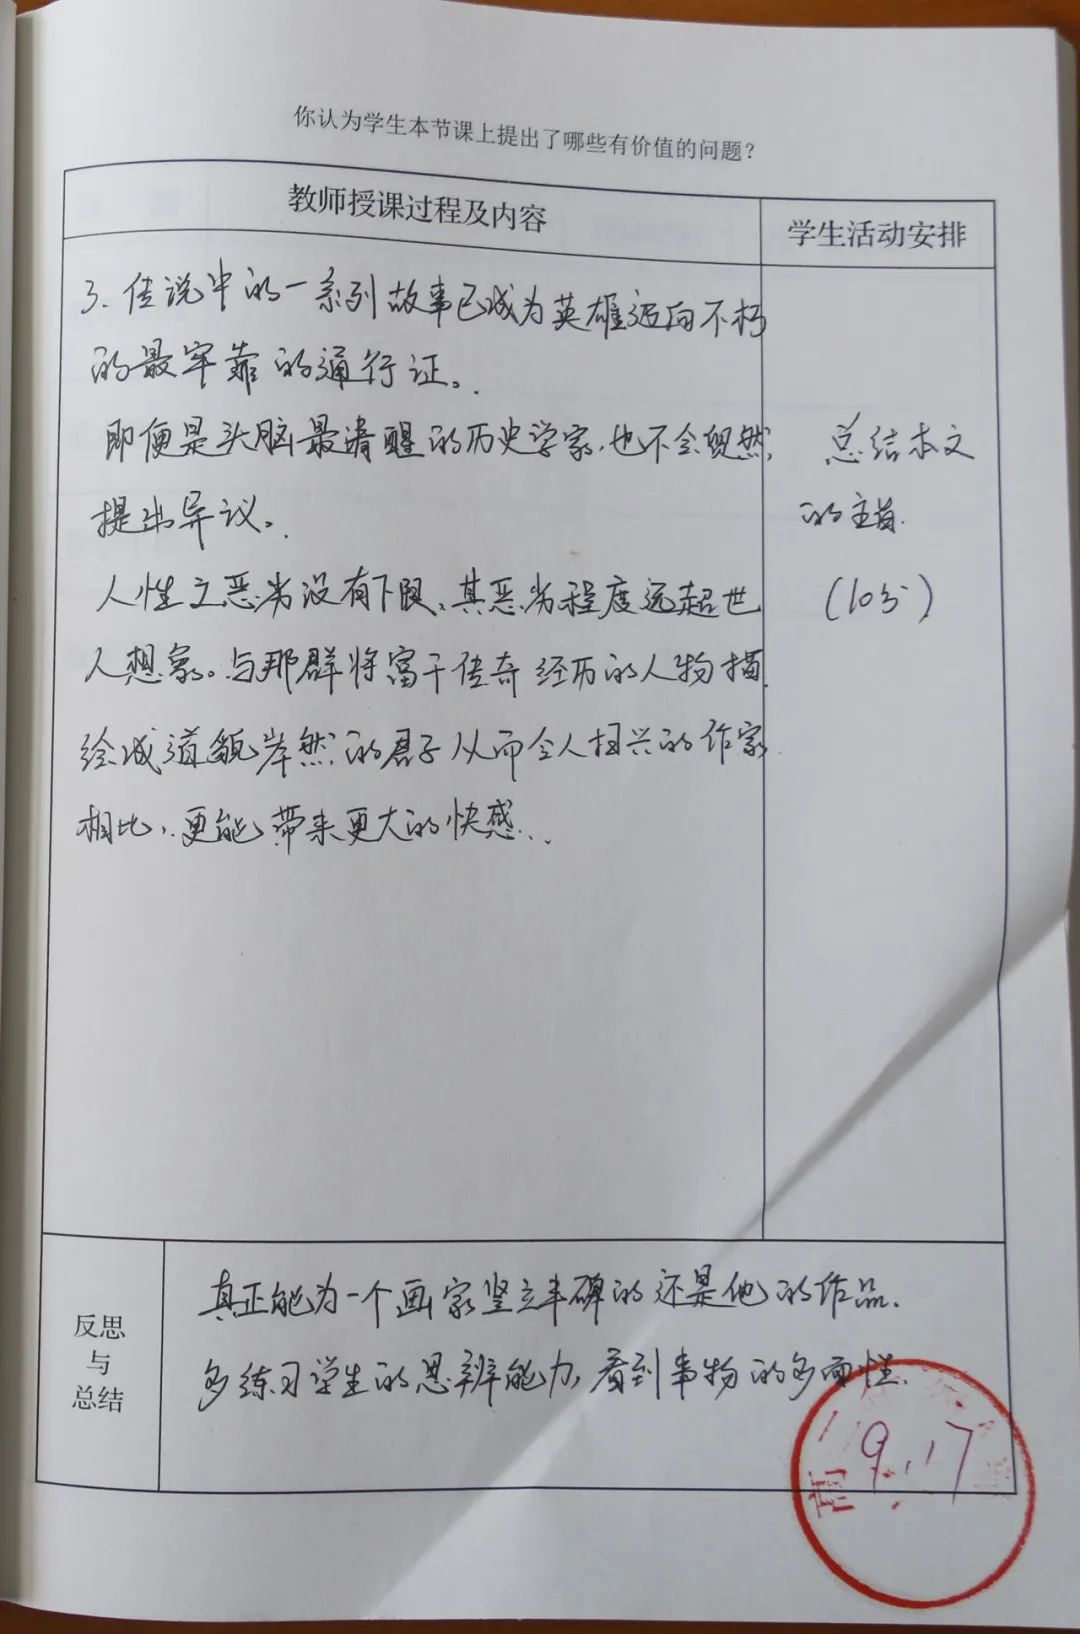 你认为学生本节课上提出了哪些有价值的问题？
教师授课过程及内容
学生活动安排
3、传说中的一系列故事已成为英雄迈向不朽
的最牢靠的通行证。
即便是头脑最清醒的历史学家，也不会贸然
提出异议。
人性之恶劣没有下限，其恶劣程度远超世
人想象。与那群将富于传奇经历的人物描
绘成道貌岸然的君子从而令人扫兴的作家
相比，更能带来更大的快感。
总结本文
的主旨.
(10分)
反思
与
总结
真正能为一个画家竖立丰碑的还是他的作品.
多练习学生的思辨能力，看到事物的多面性.
9.17